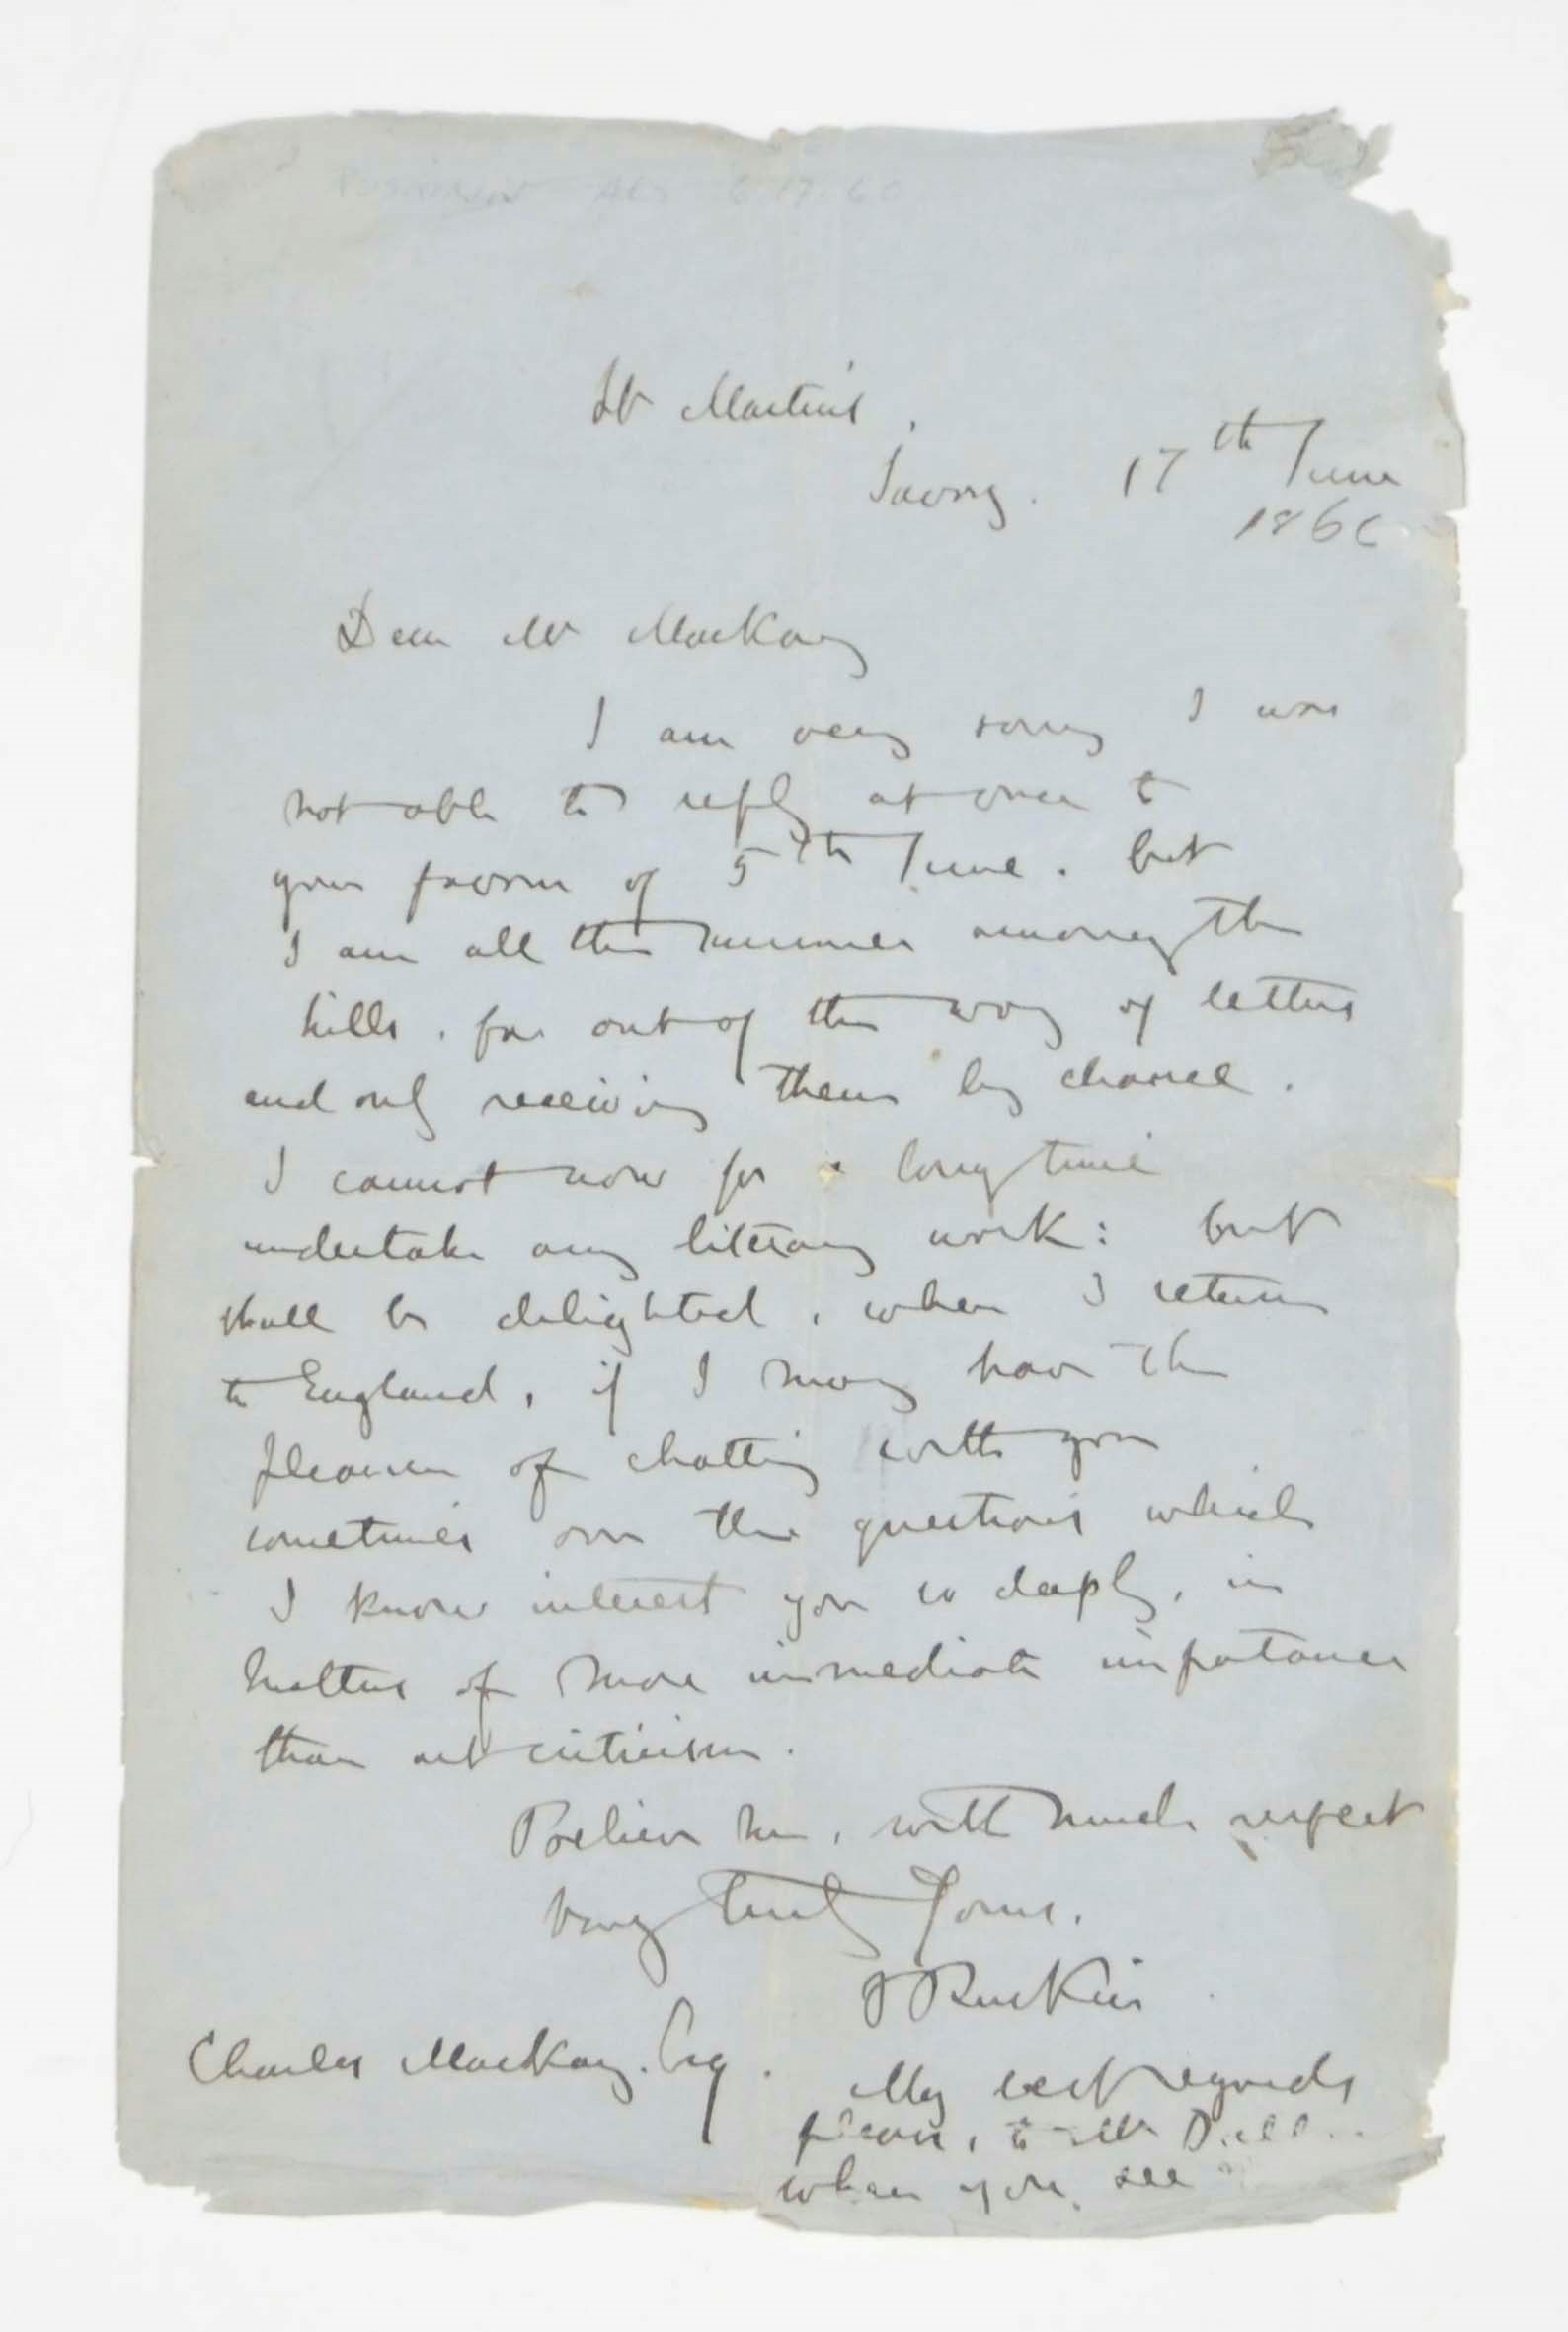 ALS 6.17.60
St Martin's,
Savoy. 17th June
1860
Dear Mr Mackay
I am very sorry I was
not able to reply at once to
your favour of 5th June. but
I am all this summer among the
hills, far out of the way of letters
and only receiving them by chance.
I cannot now for a long time
undertake any literary work: but
shall be delighted, when I return
to England, if I may have the
pleasure of chatting with you
sometimes over the questions which
I know interest you so deeply, in
matters of more immediate importance
than art criticism.
Believe me, with much respect
very truly Yours.
J Ruskin
Charles Mackay. Esq.
My best regards
please, to Mr
when you see